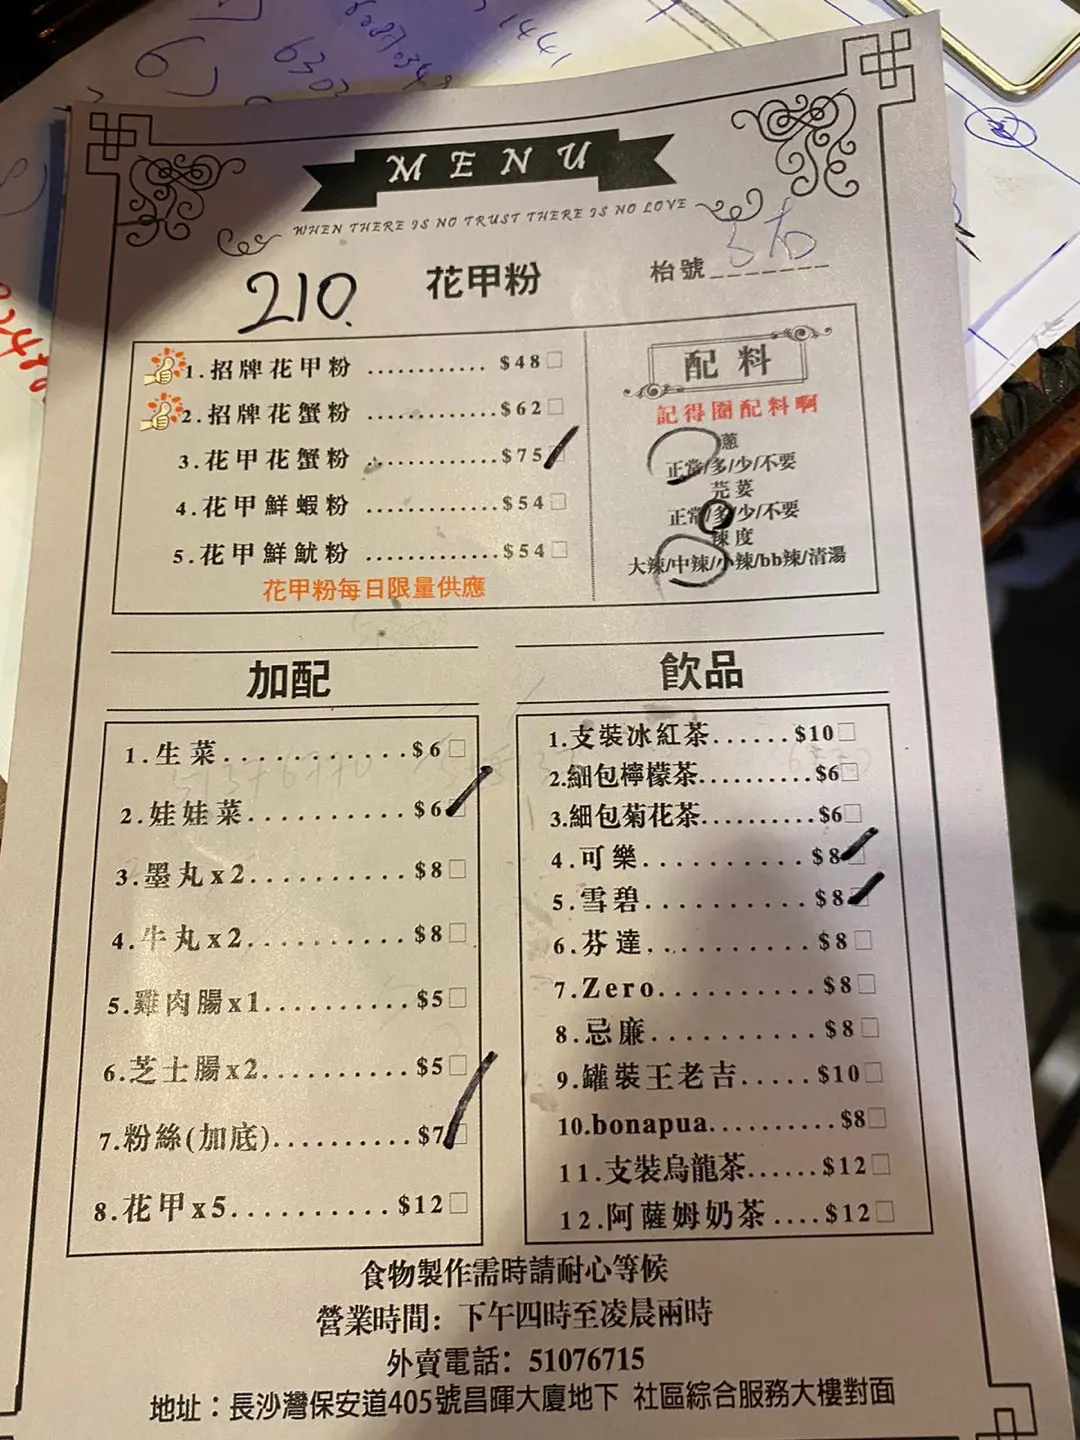 6303
1441
MENU
WHEN THERE IS NO TRUST THERE IS NO LOVE
210.
花甲粉
枱號_______
1.招牌花甲粉 ............ $48□
2.招牌花蟹粉 ............$62□
3.花甲花蟹粉 ............$75□
4.花甲鮮蝦粉 ............$54□
5.花甲鮮魷粉 ............$54□
花甲粉每日限量供應
配料
記得圈配料啊
蔥
正常/多/少/不要
芫荽
正常/多/少/不要
辣度
大辣/中辣/小辣/bb辣/清湯
加配
1.生菜............$6□
2.娃娃菜..........$6□
3.墨丸x2..........$8□
4.牛丸x2..........$8□
5.雞肉腸x1.........$5□
6.芝士腸x2.........$5□
7.粉絲(加底).........$7□
8.花甲x5..........$12□
飲品
1.支裝冰紅茶......$10□
2.細包檸檬茶.........$6□
3.細包菊花茶.........$6□
4.可樂..........$8□
5.雪碧..........$8□
6.芬達..........$8□
7.Zero..........$8□
8.忌廉..........$8□
9.罐裝王老吉.....$10□
10.bonapua..........$8□
11.支裝烏龍茶......$12□
12.阿薩姆奶茶....$12□
食物製作需時請耐心等候
營業時間：下午四時至凌晨兩時
外賣電話：51076715
地址：長沙灣保安道405號昌暉大廈地下 社區綜合服務大樓對面